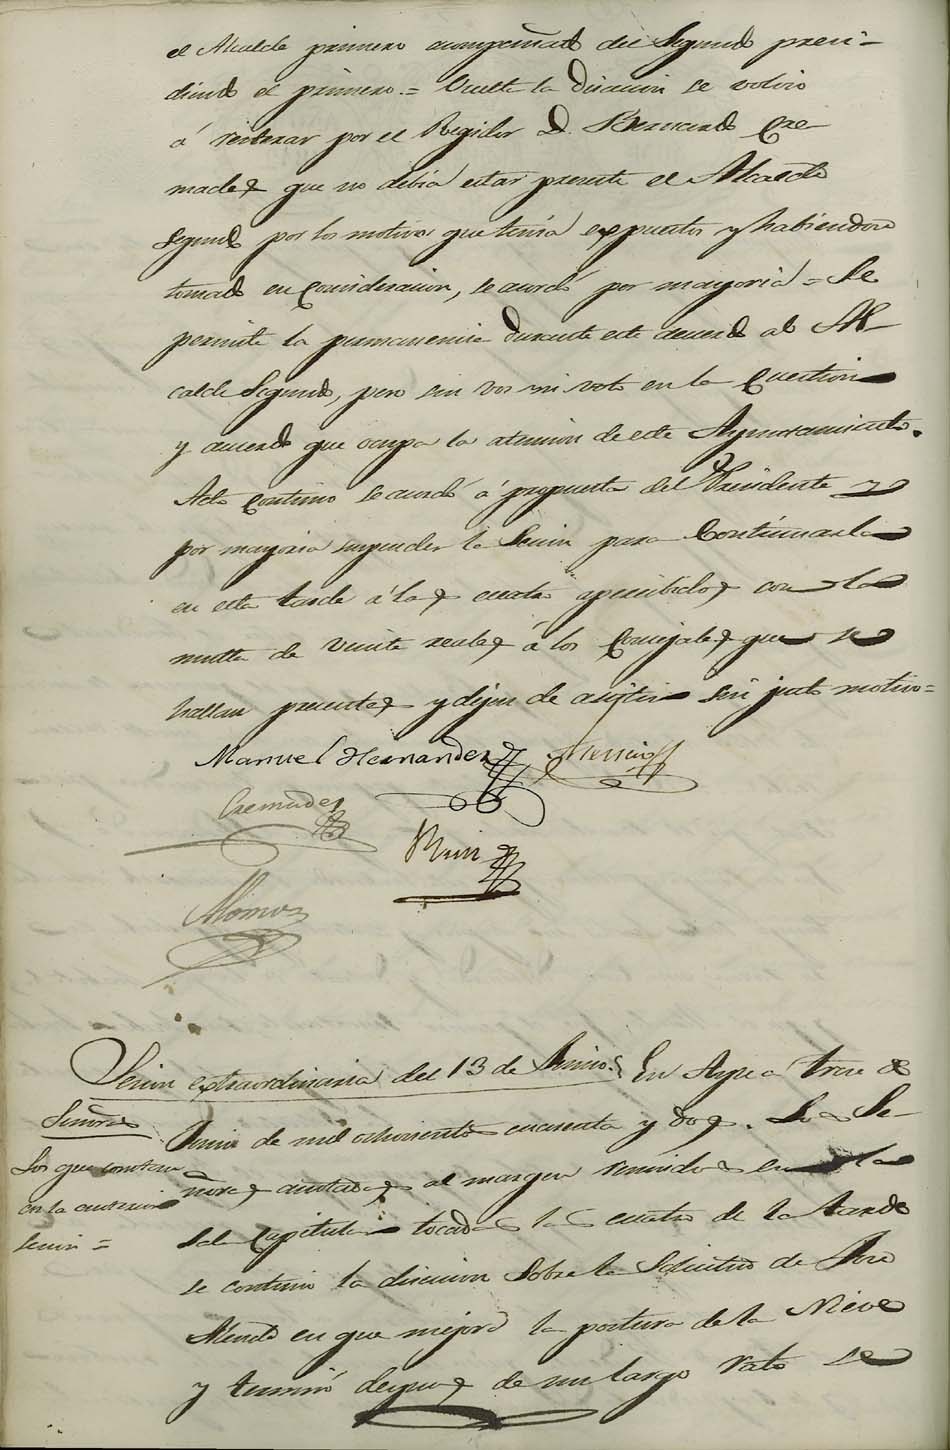 el Alcalde primero acompañado del Segundo presi-
diendo el primero.= Vuelta la discusion se volvio
á reiterar por el Regidor D. Bernardo Cre-
mades que no debia estar presente el Alcalde
segundo por los motivos que tenia expuestos y habiendose
tomado en Consideracion, se acordó por mayoria = Se
permite la permanencia durante este acuerdo al Al-
calde Segundo, pero sin vos ni voto en la Cuestion
y acuerdo que ocupa la atencion de este Ayuntamiento.
Acto continuo se acordó á propuesta del Presidente y
por mayoria suspender la Sesion para Continuarla
en esta tarde á las cuatro apercibidos con la
multa de veinte reales á los Concejales que se
hallan presentes y dejen de asistir sin justo motivo=
Manuel Hernandez
Cremades
Ruiz
Alonso
Sesion extraordinaria del 13 de Junio.
En Ayora trece de
Señores
Junio de mil ochocientos cuarenta y dos. Los Se-
Los que constan
ñores anotados al margen reunidos en la
en la anterior
Sala Capitular tocadas las cuatro de la tarde
sesion =
se continuo la discusion sobre la Solicitud de Jose
en que mejoró la postura de la Nieve
y terminó despues de un largo rato se